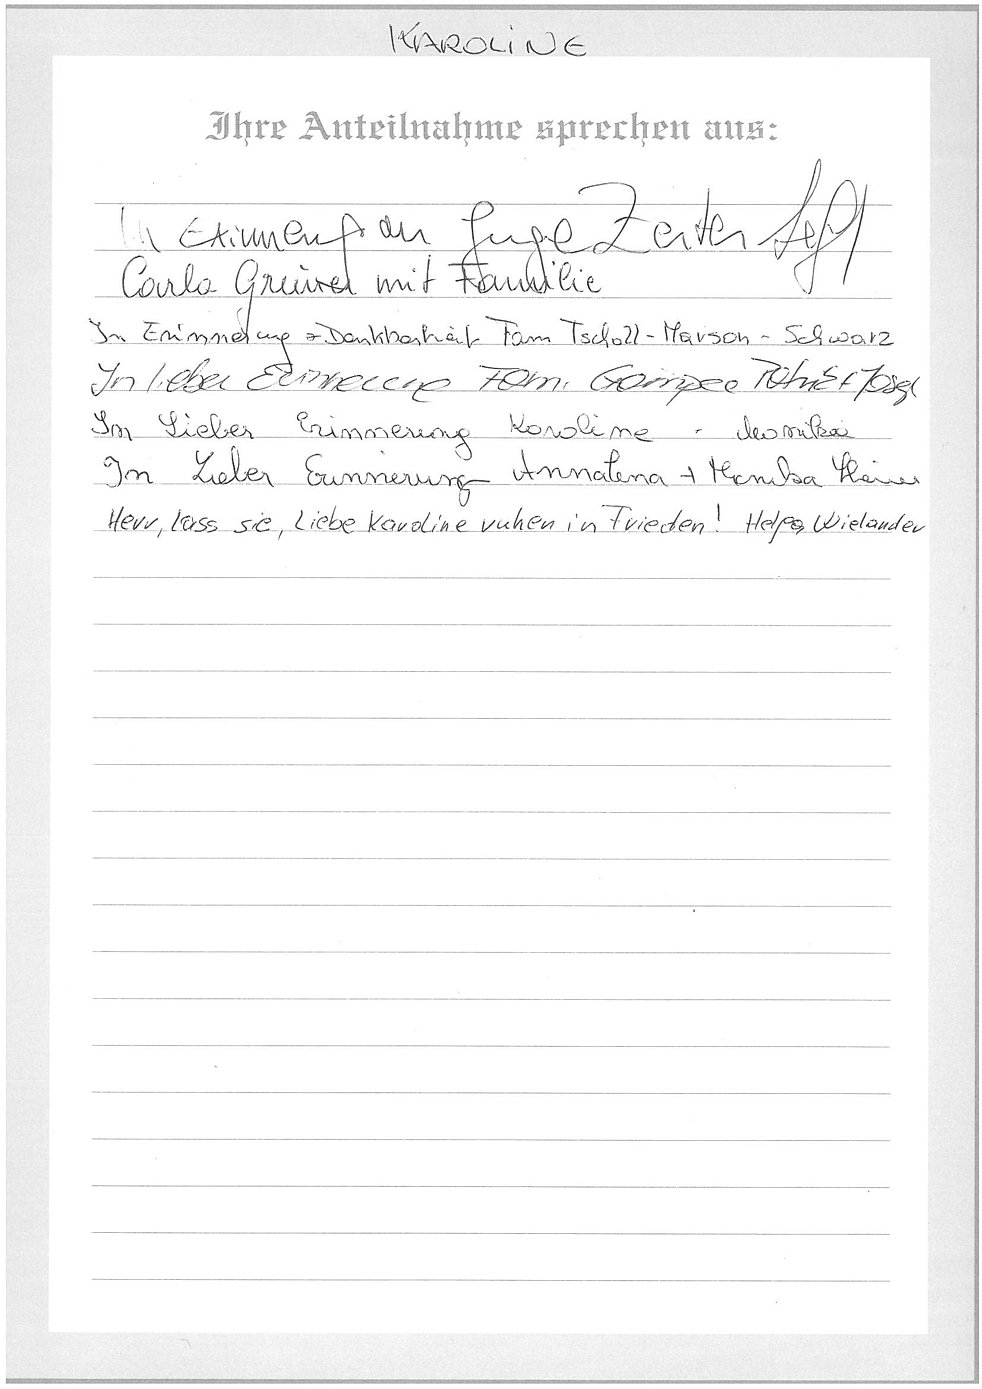 KAROLINE
Ihre Anteilnahme sprechen aus:
In Erinnerung an Inge Zerter
Carla Grüner mit Familie
In Erinnerung + Dankbarkeit Fam Tscholl - Marson - Schwarz
In lieber Erinnerung Fam. Gamper + Josef
In Lieber Erinnerung Karoline - Monika
In Lieber Erinnerung Annalena + Monika
Herr, lass sie, Liebe Karoline ruhen in Frieden! Helga Wielander